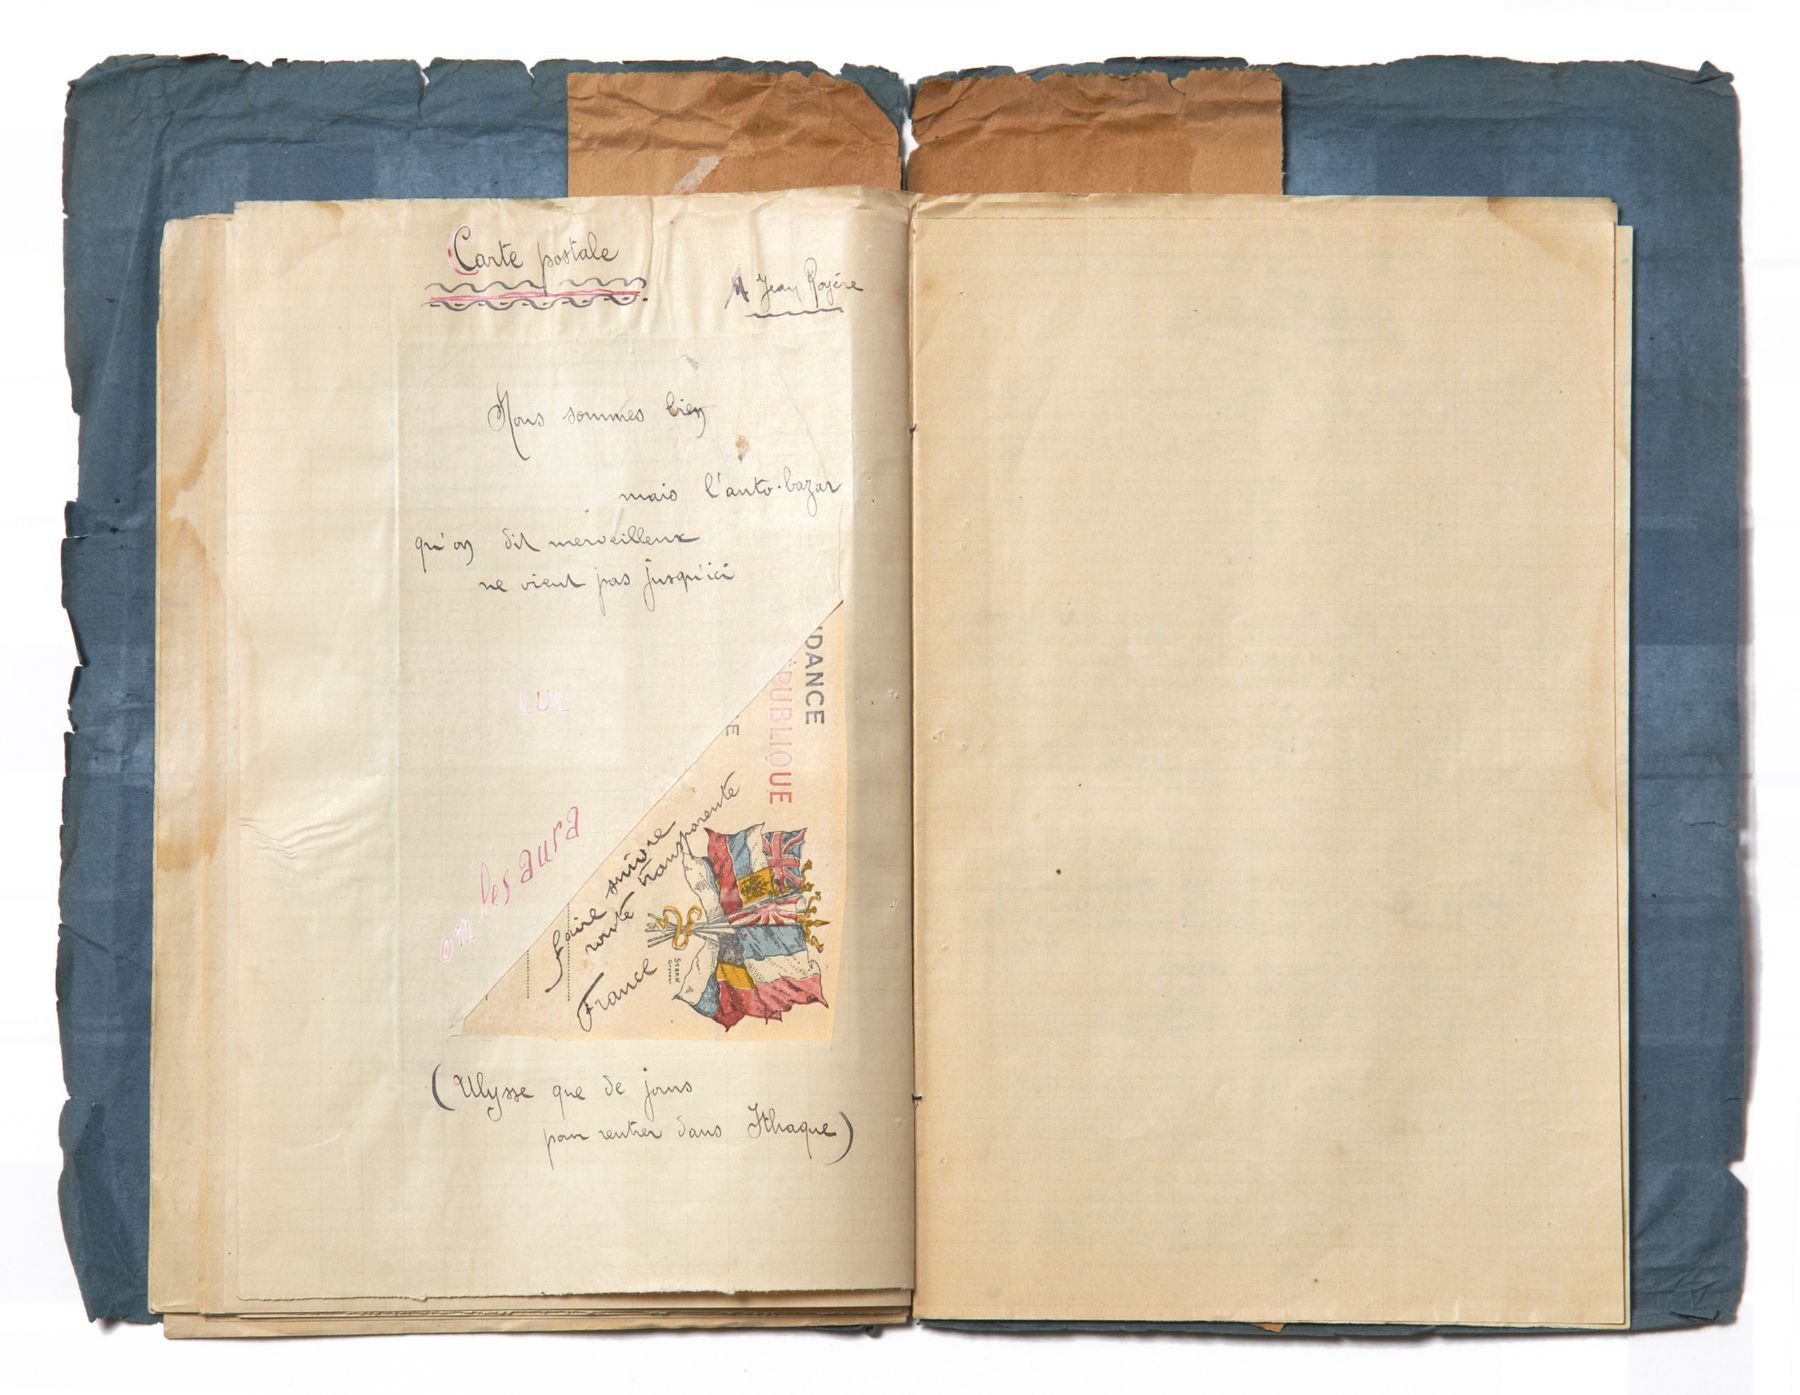 Carte postale
A Jean Royère
Nous sommes bien
mais l'auto-bazar
qu'on dit merveilleux
ne vient pas jusqu'ici
LUL
on les aura
DANCE
ÉPUBLIQUE
E
Faire suivre
route transparente
France
STERN
(Ulysse que de jours
pour rentrer dans Ithaque)